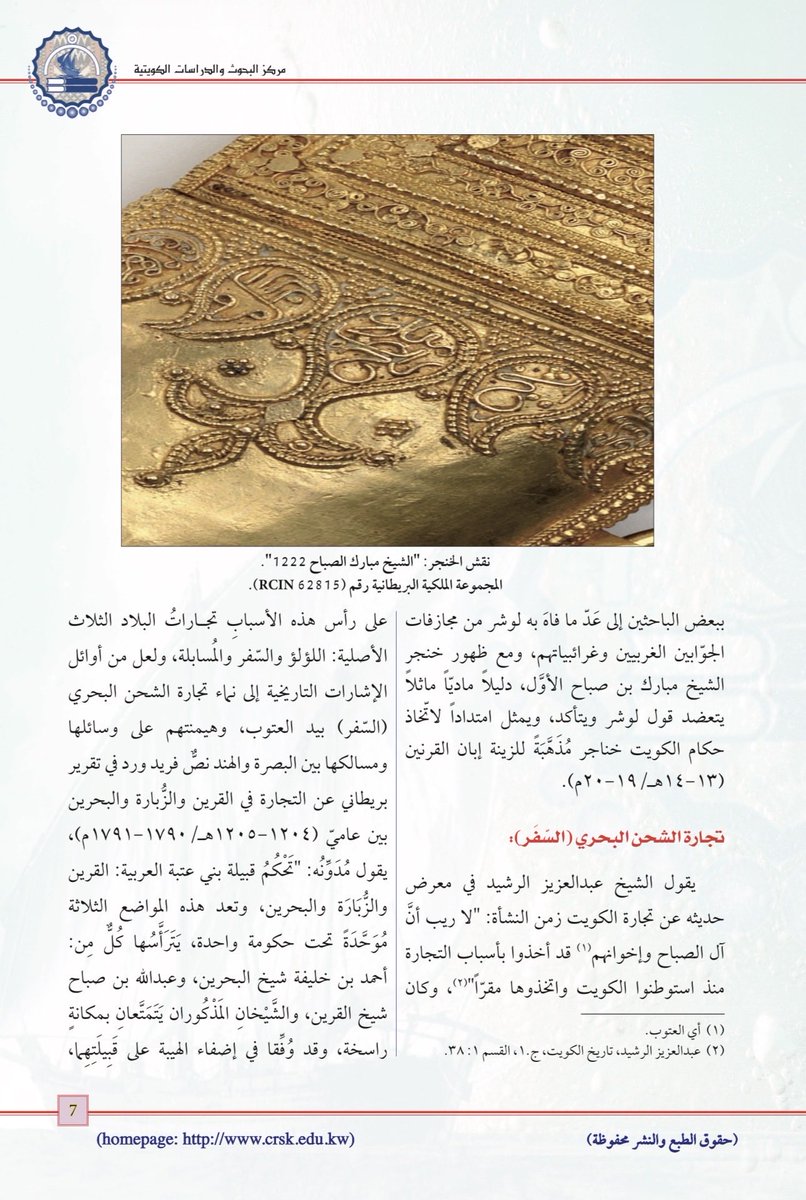 مركز البحوث والدراسات الكويتية
نقش الخنجر: "الشيخ مبارك الصباح 1222".
المجموعة الملكية البريطانية رقم (RCIN 62815).
ببعض الباحثين إلى عَدّ ما فاهَ به لوشر من مجازفات
الجوّابين الغربيين وغرائبياتهم، ومع ظهور خنجر
الشيخ مبارك بن صباح الأوَّل، دليلاً ماديّاً ماثلاً
يتعضد قول لوشر ويتأكد، ويمثل امتداداً لاتّخاذ
حكام الكويت خناجر مُذَهَّبَةً للزينة إبان القرنين
(١٣-١٤هـ/ ١٩-٢٠م).
تجارة الشحن البحري (السَفَر):
يقول الشيخ عبدالعزيز الرشيد في معرض
حديثه عن تجارة الكويت زمن النشأة: "لا ريب أنَّ
آل الصباح وإخوانهم(١) قد أخذوا بأسباب التجارة
منذ استوطنوا الكويت واتخذوها مقرّاً"(٢)، وكان
(١) أي العتوب.
(٢) عبدالعزيز الرشيد، تاريخ الكويت، ج.١، القسم ١: ٣٨.
على رأس هذه الأسبابِ تجاراتُ البلاد الثلاث
الأصلية: اللؤلؤ والسّفر والمُسابلة، ولعل من أوائل
الإشارات التاريخية إلى نماء تجارة الشحن البحري
(السّفر) بيد العتوب، وهيمنتهم على وسائلها
ومسالكها بين البصرة والهند نصٌّ فريد ورد في تقرير
بريطاني عن التجارة في القرين والزُّبارة والبحرين
بين عاميّ (١٢٠٤-١٢٠٥هـ/ ١٧٩٠-١٧٩١م)،
يقول مُدَوِّنُه: "تَحْكُمُ قبيلة بني عتبة العربية: القرين
والزُّبَارَة والبحرين، وتعد هذه المواضع الثلاثة
مُوَحَّدَةً تحت حكومة واحدة، يَتَرَأَّسُها كُلٌّ مِن:
أحمد بن خليفة شيخ البحرين، وعبدالله بن صباح
شيخ القرين، والشَّيْخانِ المَذْكُوران يَتَمَتَّعانِ بمكانةٍ
راسخة، وقد وُفِّقا في إضفاء الهيبة على قَبِيلَتِهِما،
7
(حقوق الطبع والنشر محفوظة)
(homepage: http://www.crsk.edu.kw)